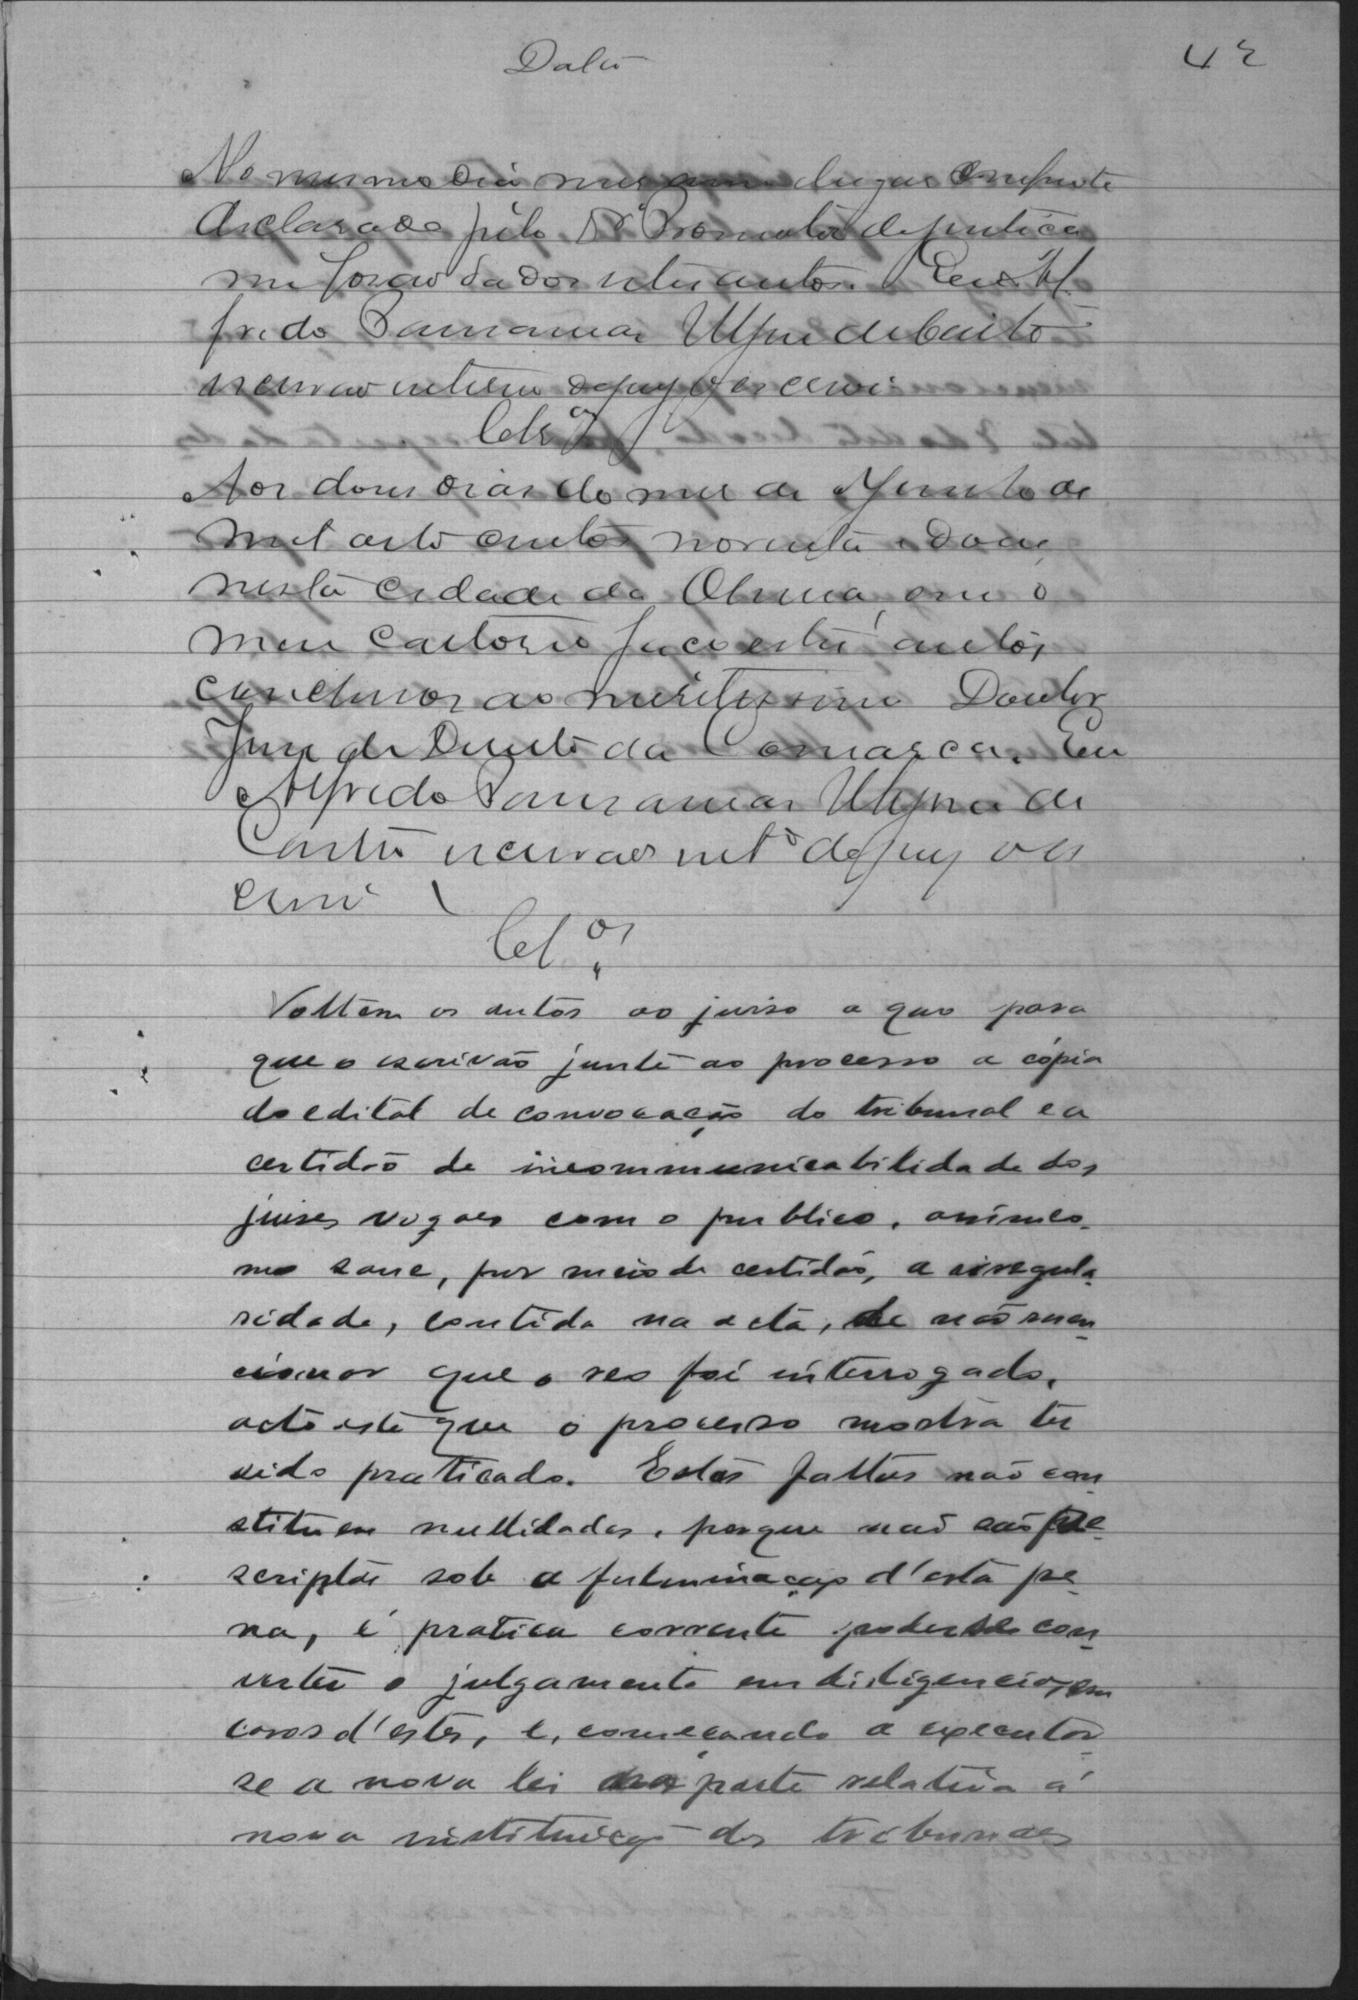 Data
42
No mesmo dia mes anno lugar
declarado pelo Dr Promotor de justiça
me forão dados estes autos. Eu Al
fredo
escrivão interino que escrevi
Cls
Aos dous dias do mes de Agosto de
mil oito centos noventa e dous
nesta cidade de em o
meu cartorio faço estes autos
conclusos ao meritissimo Doutor
Juis de Direito da Comarca. Eu
Alfredo de
Castro escrivão int.º
crevi
Cl.os
Voltem os autos ao juiso a quo para
que o escrivão junte ao processo a cópia
do edital de convocação do tribunal e a
certidão de incommunicabilidade dos
juises vogaes com o publico, assim co-
mo sane, por meio de certidão, a irregula-
ridade, contida na acta, de não men-
cionar que o reo foi interrogado,
acto este que o processo mostra ter
sido praticado. Estas faltas não con-
stituem nullidades, porque não são pre-
scriptas sob a fulminação d'esta pe-
na, é pratica corrente poder-se con-
verter o julgamento em diligencias, em
casos d'estes, e, começando a executar-
se a nova lei na parte relativa á
nova instituição dos tribunaes